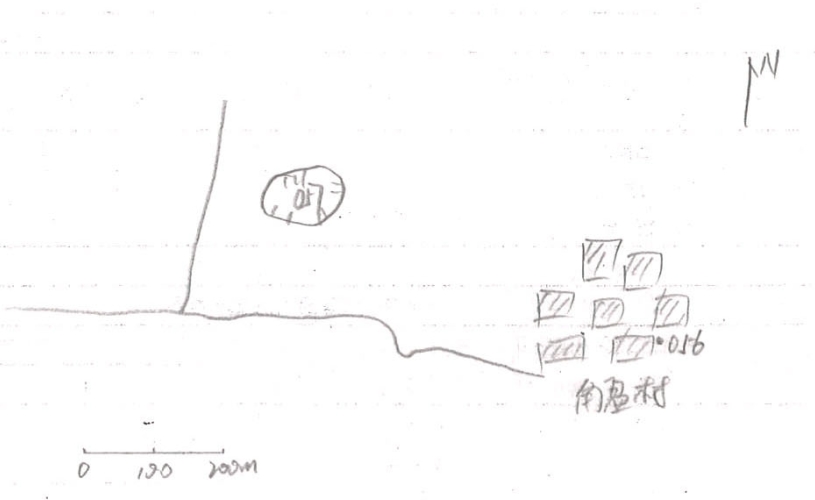 N
057
056
南盈村
0 100 200m